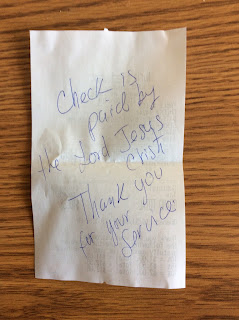 Check is
paid by
the Lord Jesus
Christ
Thank you
for your
Service.